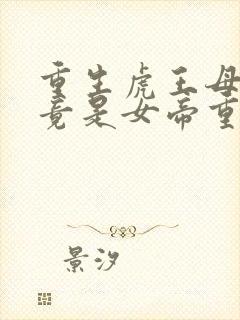 重生虎王母
竟是女帝重
景汐